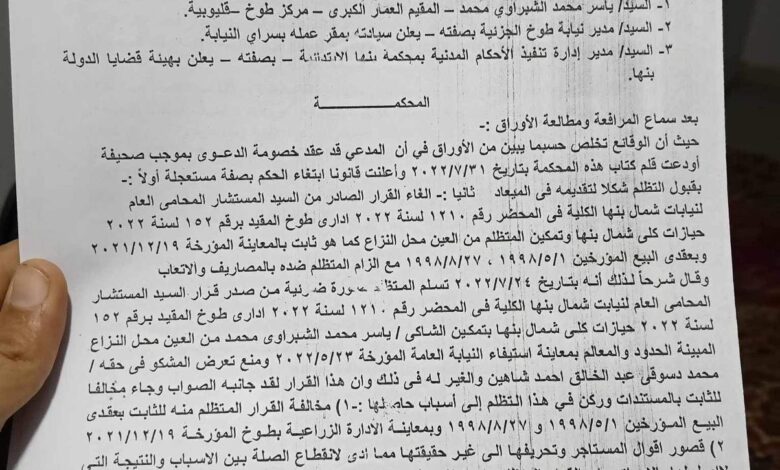 ١- السيد/ ياسر محمد الشبراوي محمد – المقيم العمار الكبرى – مركز طوخ – قليوبية.
٢- السيد/ مدير نيابة طوخ الجزئية بصفته – يعلن سيادته بمقر عمله بسراي النيابة.
٣- السيد/ مدير إدارة تنفيذ الأحكام المدنية بمحكمة بنها الابتدائية – بصفته – يعلن بهيئة قضايا الدولة
بنها.
المحكمة
بعد سماع المرافعة ومطالعة الأوراق :-
حيث أن الوقائع تخلص حسبما يبين من الأوراق في أن المدعي قد عقد خصومة الدعوى بموجب صحيفة
أودعت قلم كتاب هذه المحكمة بتاريخ ٢٠٢٢/٧/٣١ وأعلنت قانونا ابتغاء الحكم بصفة مستعجلة أولاً :-
بقبول التظلم شكلا لتقديمه فى الميعاد ثانيا :- الغاء القرار الصادر من السيد المستشار المحامى العام
لنيابات شمال بنها الكلية فى المحضر رقم ١٢١٠ لسنة ٢٠٢٢ ادارى طوخ المقيد برقم ١٥٢ لسنة ٢٠٢٢
حيازات كلى شمال بنها وتمكين المتظلم من العين محل النزاع كما هو ثابت بالمعاينة المؤرخة ٢٠٢١/١٢/١٩
وبعقدى البيع المؤرخين ١٩٩٨/٥/١ ، ١٩٩٨/٨/٢٧ مع الزام المتظلم ضده بالمصاريف والاتعاب
وقال شرحاً لذلك أنه بتاريخ ٢٠٢٢/٧/٢٤ تسلم المتظلم صورة ضوئية من صدر قرار السيد المستشار
المحامى العام لنيابت شمال بنها الكلية فى المحضر رقم ١٢١٠ لسنة ٢٠٢٢ ادارى طوخ المقيد برقم ١٥٢
لسنة ٢٠٢٢ حيازات كلى شمال بنها بتمكين الشاكى / ياسر محمد الشبراوى محمد من العين محل النزاع
المبينة الحدود والمعالم بمعاينة استيفاء النيابة العامة المؤرخة ٢٠٢٢/٥/٢٣ ومنع تعرض المشكو فى حقه /
محمد دسوقى عبد الخالق احمد شاهين والغير له فى ذلك وان هذا القرار لقد جانبه الصواب وجاء مخالفا
للثابت بالمستندات وركن في هذا التظلم إلى أسباب حاصلها :-١) مخالفة القرار المتظلم منه للثابت بعقدى
البيع المؤرخين ١٩٩٨/٥/١ و ١٩٩٨/٨/٢٧ وبمعاينة الادارة الزراعية بطوخ المؤرخة ٢٠٢١/١٢/١٩
٢) قصور اقوال المستاجر وتحريفها الى غير حقيقتها مما ادى لانقطاع الصلة بين الاسباب والنتيجة التى